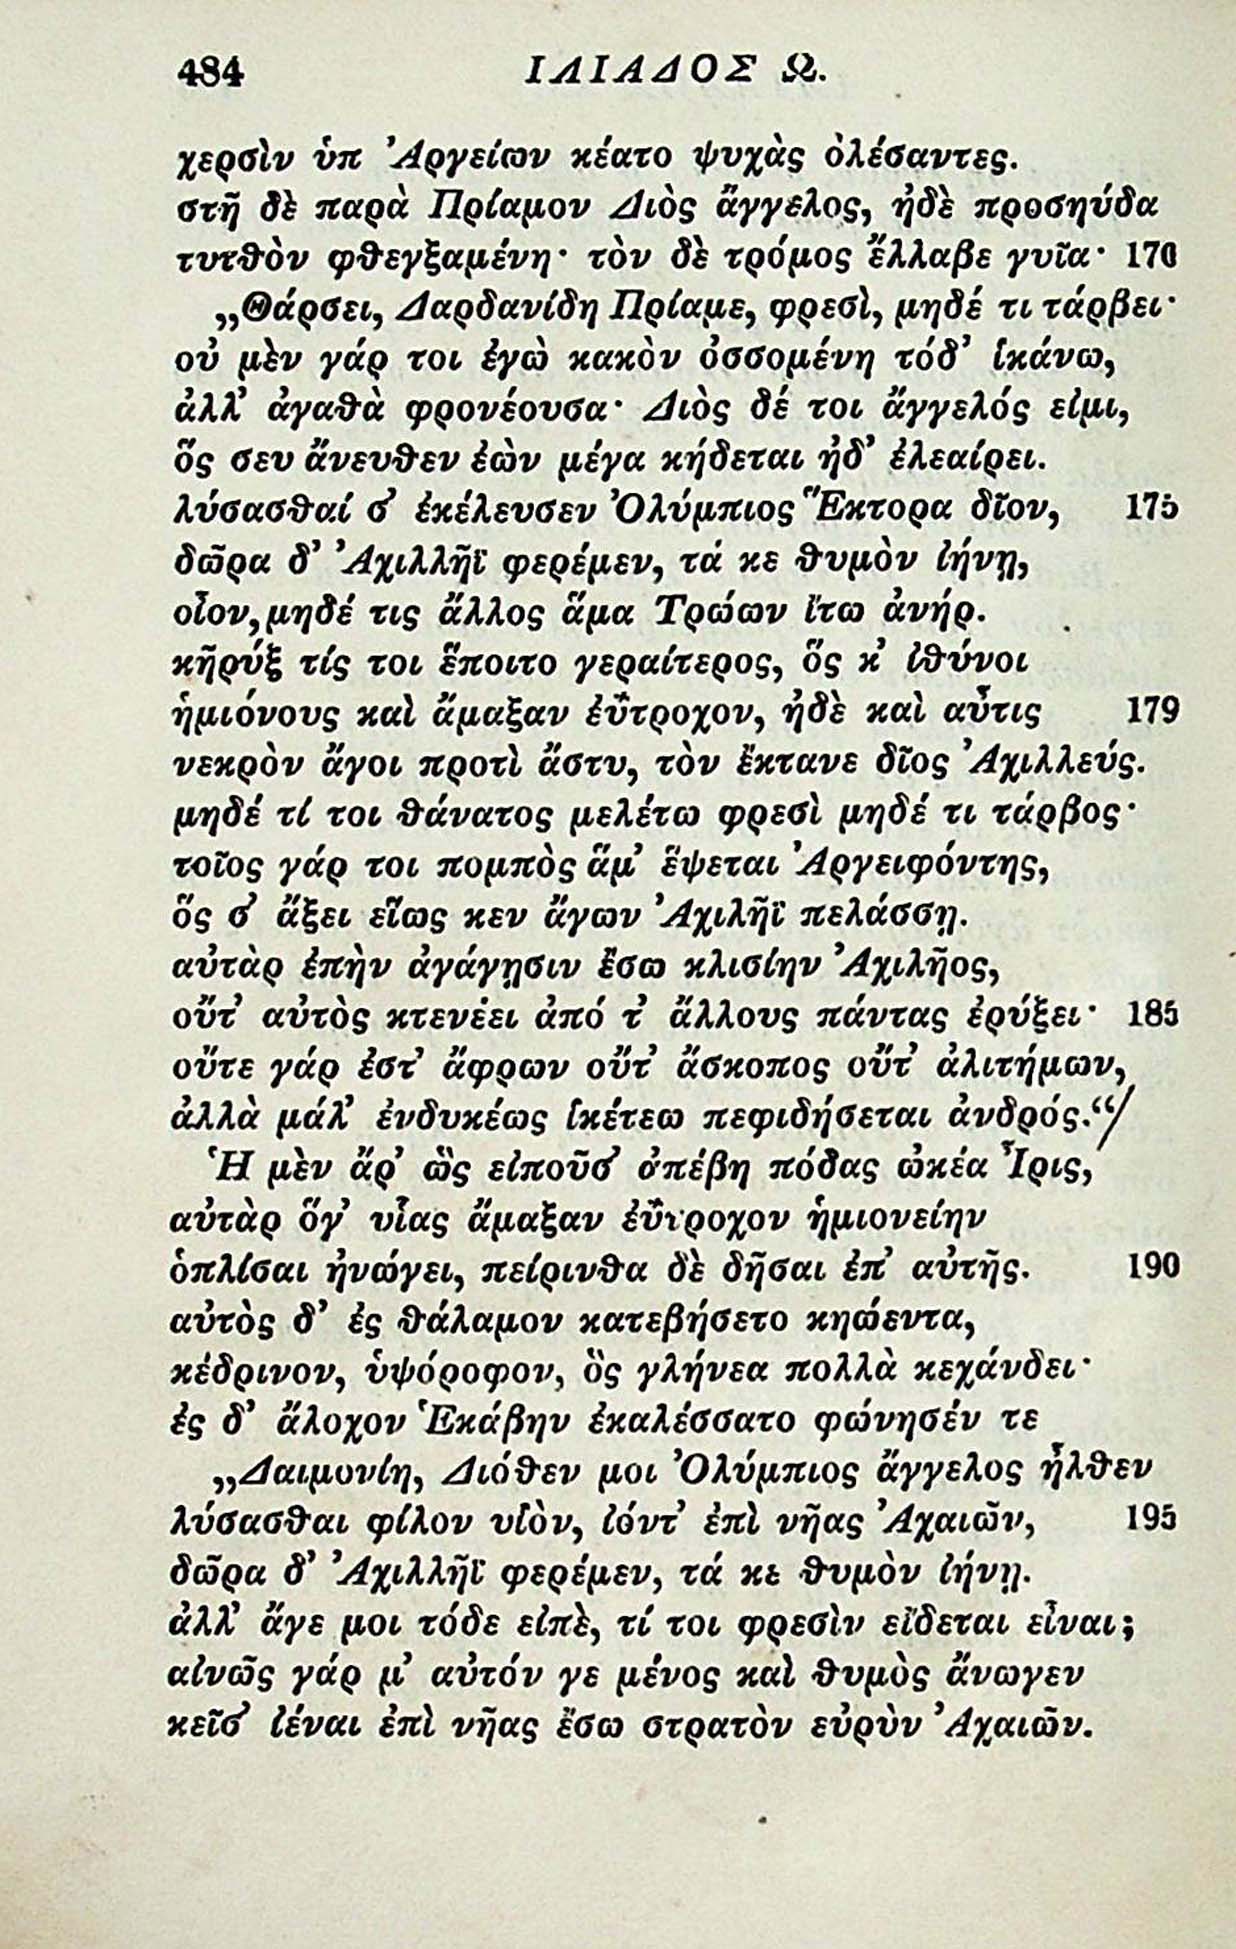 484 ΙΛΙΑΔΟΣ Ω.
χερσὶν ὑπ Ἀργείων κέατο ψυχὰς ὀλέσαντες.
στῆ δὲ παρὰ Πρίαμον Διὸς ἄγγελος, ἠδὲ προσηύδα
τυτθὸν φθεγξαμένη· τὸν δὲ τρόμος ἔλλαβε γυῖα· 170
„Θάρσει, Δαρδανίδη Πρίαμε, φρεσὶ, μηδέ τι τάρβει·
οὐ μὲν γάρ τοι ἐγὼ κακὸν ὀσσομένη τόδ’ ἱκάνω,
ἀλλ’ ἀγαθὰ φρονέουσα· Διὸς δέ τοι ἄγγελός εἰμι,
ὅς σευ ἄνευθεν ἐὼν μέγα κήδεται ἠδ’ ἐλεαίρει.
λύσασθαί σ’ ἐκέλευσεν Ὀλύμπιος Ἕκτορα δῖον, 175
δῶρα δ’ Ἀχιλλῆϊ φερέμεν, τά κε θυμὸν ἰήνῃ,
οἶον, μηδέ τις ἄλλος ἅμα Τρώων ἴτω ἀνήρ.
κῆρύξ τίς τοι ἕποιτο γεραίτερος, ὅς κ’ ἰθύνοι
ἡμιόνους καὶ ἅμαξαν ἐΰτροχον, ἠδὲ καὶ αὖτις 179
νεκρὸν ἄγοι προτὶ ἄστυ, τὸν ἔκτανε δῖος Ἀχιλλεύς.
μηδέ τί τοι θάνατος μελέτω φρεσὶ μηδέ τι τάρβος·
τοῖος γάρ τοι πομπὸς ἅμ’ ἕψεται Ἀργειφόντης,
ὅς σ’ ἄξει εἵως κεν ἄγων Ἀχιλῆϊ πελάσσῃ.
αὐτὰρ ἐπὴν ἀγάγῃσιν ἔσω κλισίην Ἀχιλῆος,
οὔτ’ αὐτὸς κτενέει ἀπό τ’ ἄλλους πάντας ἐρύξει· 185
οὔτε γάρ ἐστ’ ἄφρων οὔτ’ ἄσκοπος οὔτ’ ἀλιτήμων,
ἀλλὰ μάλ’ ἐνδυκέως ἱκέτεω πεφιδήσεται ἀνδρός.“
Ἡ μὲν ἄρ’ ὣς εἰποῦσ’ ἀπέβη πόδας ὠκέα Ἶρις,
αὐτὰρ ὅγ’ υἷας ἅμαξαν ἐΰτροχον ἡμιονείην
ὁπλίσαι ἠνώγει, πείρινθα δὲ δῆσαι ἐπ’ αὐτῆς. 190
αὐτὸς δ’ ἐς θάλαμον κατεβήσετο κηώεντα,
κέδρινον, ὑψόροφον, ὃς γλήνεα πολλὰ κεχάνδει·
ἐς δ’ ἄλοχον Ἑκάβην ἐκαλέσσατο φώνησέν τε
„Δαιμονίη, Διόθεν μοι Ὀλύμπιος ἄγγελος ἦλθεν
λύσασθαι φίλον υἱὸν, ἰόντ’ ἐπὶ νῆας Ἀχαιῶν, 195
δῶρα δ’ Ἀχιλλῆϊ φερέμεν, τά κε θυμὸν ἰήνῃ.
ἀλλ’ ἄγε μοι τόδε εἰπὲ, τί τοι φρεσὶν εἴδεται εἶναι;
αἰνῶς γάρ μ’ αὐτόν γε μένος καὶ θυμὸς ἄνωγεν
κεῖσ’ ἰέναι ἐπὶ νῆας ἔσω στρατὸν εὐρὺν Ἀχαιῶν.